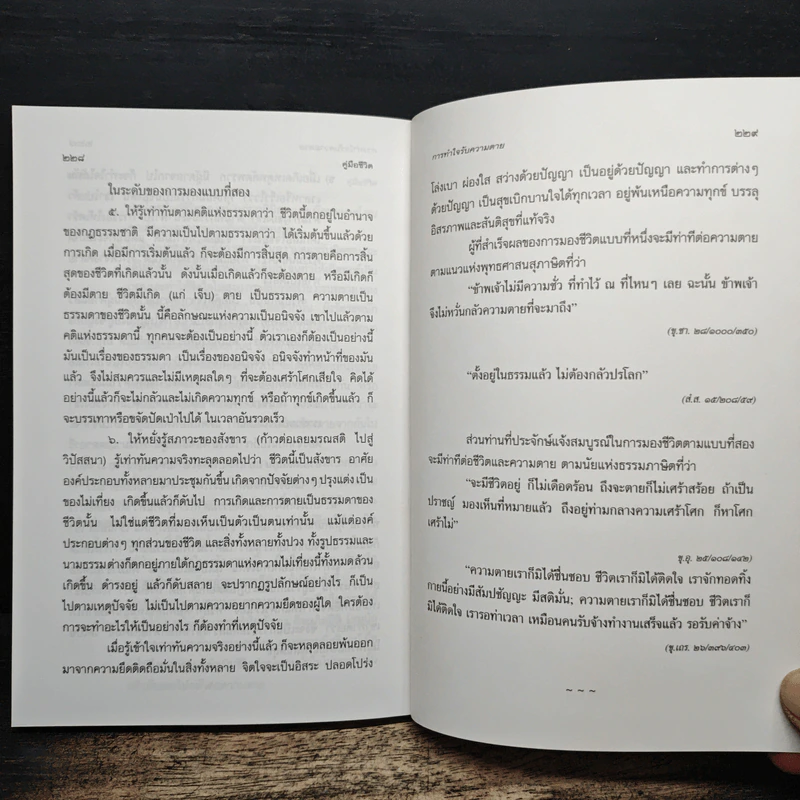 ๒๒๘
คู่มือชีวิต
ในระดับของการมองแบบที่สอง
๕. ให้รู้เท่าทันตามคติแห่งธรรมดาว่า ชีวิตนี้ตกอยู่ในอำนาจ
ของกฎธรรมชาติ มีความเป็นไปตามธรรมดาว่า ได้เริ่มต้นขึ้นแล้วด้วย
การเกิด เมื่อมีการเริ่มต้นแล้ว ก็จะต้องมีการสิ้นสุด การตายคือการสิ้น
สุดของชีวิตที่เกิดแล้วนั้น ดังนั้นเมื่อเกิดแล้วก็จะต้องตาย หรือมีเกิดก็
ต้องมีตาย ชีวิตมีเกิด (แก่ เจ็บ) ตาย เป็นธรรมดา ความตายเป็น
ธรรมดาของชีวิตนั้น นี้คือลักษณะแห่งความเป็นอนิจจัง เขาไปแล้วตาม
คติแห่งธรรมดานี้ ทุกคนจะต้องเป็นอย่างนี้ ตัวเราเองก็ต้องเป็นอย่างนี้
มันเป็นเรื่องของธรรมดา เป็นเรื่องของอนิจจัง อนิจจังทำหน้าที่ของมัน
แล้ว จึงไม่สมควรและไม่มีเหตุผลใดๆ ที่จะต้องเศร้าโศกเสียใจ คิดได้
อย่างนี้แล้วก็จะไม่กลัวและไม่เกิดความทุกข์ หรือถ้าทุกข์เกิดขึ้นแล้ว ก็
จะบรรเทาหรือขจัดปัดเป่าไปได้ ในเวลาอันรวดเร็ว
๖. ให้หยั่งรู้สภาวะของสังขาร (ก้าวต่อเลยมรณสติ ไปสู่
วิปัสสนา) รู้เท่าทันความจริงทะลุตลอดไปว่า ชีวิตนี้เป็นสังขาร อาศัย
องค์ประกอบทั้งหลายมาประชุมกันขึ้น เกิดจากปัจจัยต่างๆ ปรุงแต่ง เป็น
ของไม่เที่ยง เกิดขึ้นแล้วก็ดับไป การเกิดและการตายเป็นธรรมดาของ
ชีวิตนั้น ไม่ใช่แต่ชีวิตที่มองเห็นเป็นตัวเป็นตนเท่านั้น แม้แต่องค์
ประกอบต่างๆ ทุกส่วนของชีวิต และสิ่งทั้งหลายทั้งปวง ทั้งรูปธรรมและ
นามธรรมต่างก็ตกอยู่ภายใต้กฎธรรมดาแห่งความไม่เที่ยงนี้ทั้งหมดล้วน
เกิดขึ้น ดำรงอยู่ แล้วก็ดับสลาย จะปรากฏรูปลักษณ์อย่างไร ก็เป็น
ไปตามเหตุปัจจัย ไม่เป็นไปตามความอยากความยึดของผู้ใด ใครต้อง
การจะทำอะไรให้เป็นอย่างไร ก็ต้องทำที่เหตุปัจจัย
เมื่อรู้เข้าใจเท่าทันความจริงอย่างนี้แล้ว ก็จะหลุดลอยพ้นออก
มาจากความยึดติดถือมั่นในสิ่งทั้งหลาย จิตใจจะเป็นอิสระ ปลอดโปร่ง
การทำใจรับความตาย
๒๒๙
โล่งเบา ผ่องใส สว่างด้วยปัญญา เป็นอยู่ด้วยปัญญา และทำการต่างๆ
ด้วยปัญญา เป็นสุขเบิกบานใจได้ทุกเวลา อยู่พ้นเหนือความทุกข์ บรรลุ
อิสรภาพและสันติสุขที่แท้จริง
ผู้ที่สำเร็จผลของการมองชีวิตแบบที่หนึ่งจะมีท่าทีต่อความตาย
ตามแนวแห่งพุทธศาสนสุภาษิตที่ว่า
“ข้าพเจ้าไม่มีความชั่ว ที่ทำไว้ ณ ที่ไหนๆ เลย ฉะนั้น ข้าพเจ้า
จึงไม่หวั่นกลัวความตายที่จะมาถึง”
(ขุ.ชา. ๒๘/๑๐๐๐/๓๕๐)
“ตั้งอยู่ในธรรมแล้ว ไม่ต้องกลัวปรโลก”
(สํ.ส. ๑๕/๒๐๘/๕๙)
ส่วนท่านที่ประจักษ์แจ้งสมบูรณ์ในการมองชีวิตตามแบบที่สอง
จะมีท่าทีต่อชีวิตและความตาย ตามนัยแห่งธรรมภาษิตที่ว่า
“จะมีชีวิตอยู่ ก็ไม่เดือดร้อน ถึงจะตายก็ไม่เศร้าสร้อย ถ้าเป็น
ปราชญ์ มองเห็นที่หมายแล้ว ถึงอยู่ท่ามกลางความเศร้าโศก ก็หาโศก
เศร้าไม่”
ขุ.อุ. ๒๕/๑๐๘/๑๔๒)
“ความตายเราก็มิได้ชื่นชอบ ชีวิตเราก็มิได้ติดใจ เราจักทอดทิ้ง
กายนี้อย่างมีสัมปชัญญะ มีสติมั่น; ความตายเราก็มิได้ชื่นชอบ ชีวิตเราก็
มิได้ติดใจ เรารอท่าเวลา เหมือนคนรับจ้างทำงานเสร็จแล้ว รอรับค่าจ้าง”
(ขุ.เถร. ๒๖/๓๙๖/๔๐๓)
~ ~ ~